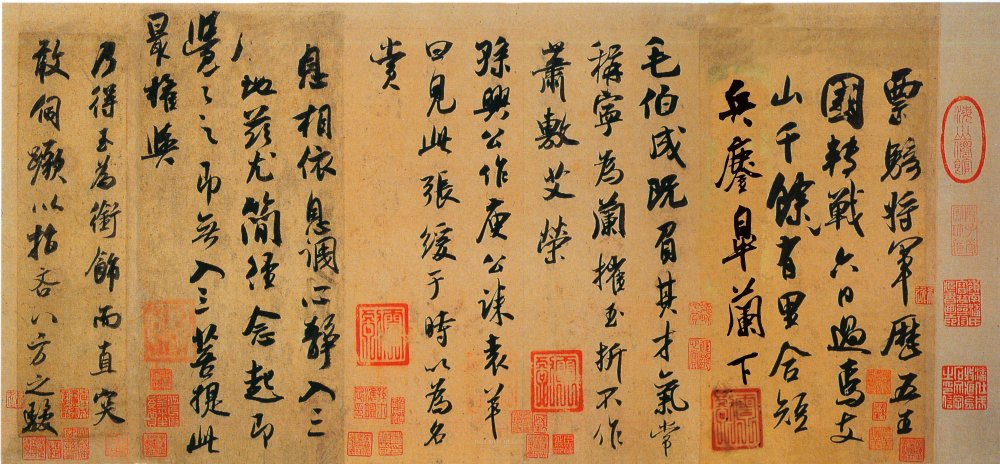 票騎將軍歷五王
國轉戰六日過焉支
山千餘有里合短
兵鏖皋蘭下
毛伯成既負其才氣常
稱寧為蘭摧玉折不作
蕭敷艾榮
孫興公作庾公誄袁羊
曰見此張緩于時以為名
賞
息相依息調心靜入三
地茲尤簡徑念起即
覺覺之即無入三菩提此
最權輿
乃得玉為銜飾而直突
蹶以指吝八方之駿